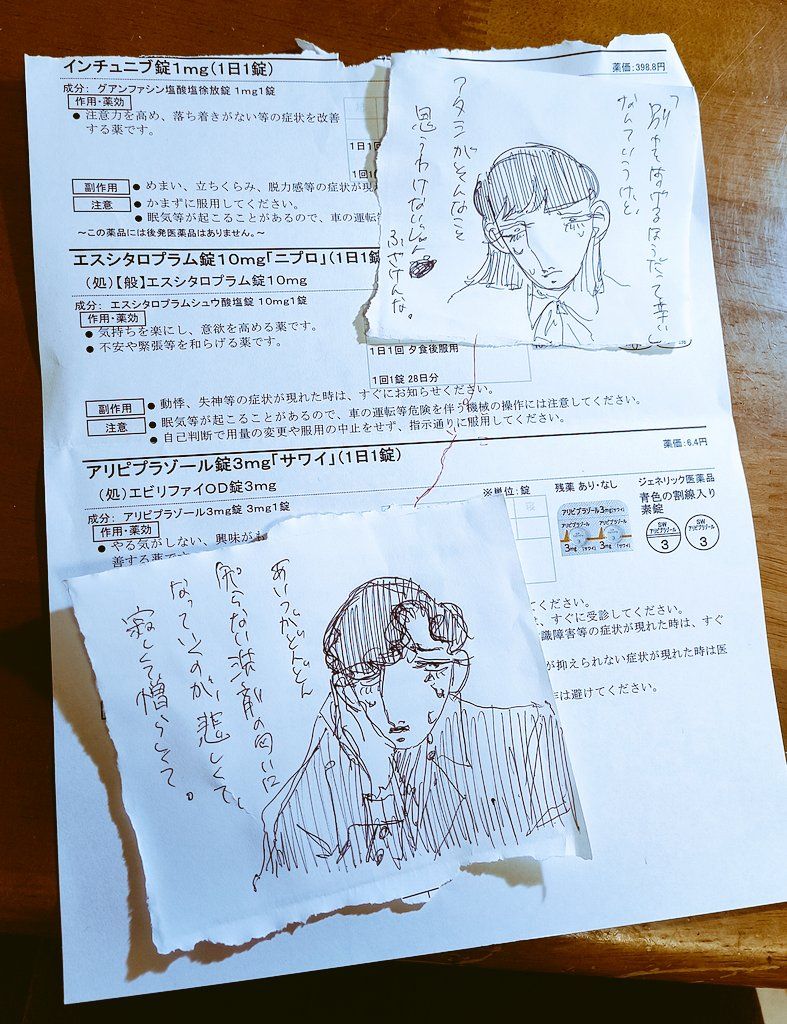 インチュニブ錠1mg(1日1錠)
薬価:398.8円
成分: グアンファシン塩酸塩徐放錠 1mg1錠
作用・薬効
● 注意力を高め、落ち着きがない等の症状を改善
する薬です。
1日1
1回1
副作用 ● めまい、立ちくらみ、脱力感等の症状が現
注意 ● かまずに服用してください。
● 眠気等が起こることがあるので、車の運転
~この薬品には後発医薬品はありません。~
「別れをつげるほうだって辛い」
なんていうけど、
アタシがそんなこと
思うわけないじゃん
ふざけんな。
エスシタロプラム錠10mg「ニプロ」(1日1錠
(処)【般】エスシタロプラム錠10mg
成分: エスシタロプラムシュウ酸塩錠 10mg1錠
作用・薬効
● 気持ちを楽にし、意欲を高める薬です。
● 不安や緊張等を和らげる薬です。
1日1回 夕食後服用
1回1錠 28日分
副作用 ● 動悸、失神等の症状が現れた時は、すぐにお知らせください。
注意 ● 眠気等が起こることがあるので、車の運転等危険を伴う機械の操作には注意してください。
● 自己判断で用量の変更や服用の中止をせず、指示通りに服用してください。
アリピプラゾール錠3mg「サワイ」(1日1錠)
薬価:6.4円
(処)エビリファイOD錠3mg
成分: アリピプラゾール3mg 3mg1錠
※単位:錠
残薬 あり・なし
ジェネリック医薬品
青色の割線入り
素錠
アリピプラゾール3mg「サワイ」
アリピプラゾール
アリピプラゾール
3mg「サワイ」
3mg「サワイ」
SW
アリピプラゾール
3
SW
アリピプラゾール
3
作用・薬効
● やる気がしない、興味がも
善する薬です
てください。
、すぐに受診してください。
識障害等の症状が現れた時は、すぐ
が抑えられない症状が現れた時は医
は避けてください。
あいつがどんどん
知らない洗剤の匂いに
なっていくのが、悲しくて、
寂しくて憎らしくて。